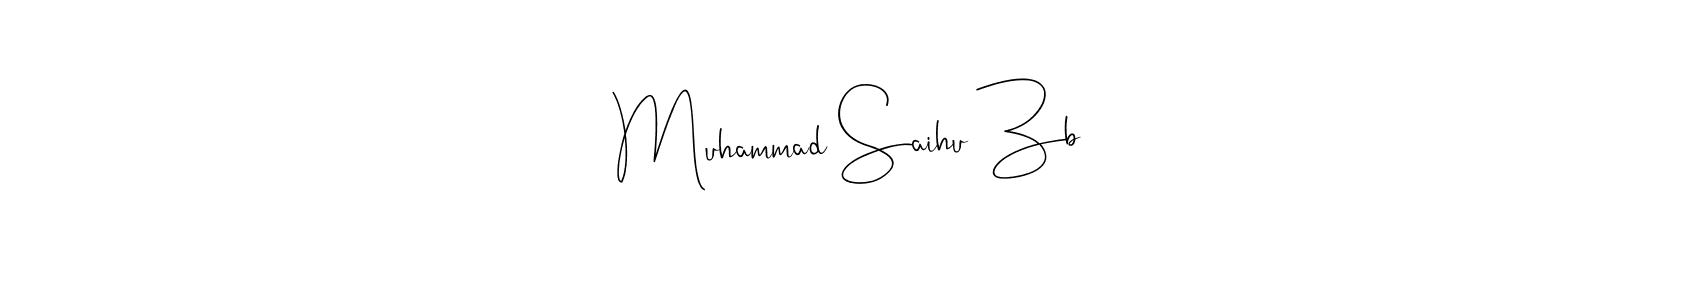 Muhammad Saihu Zb